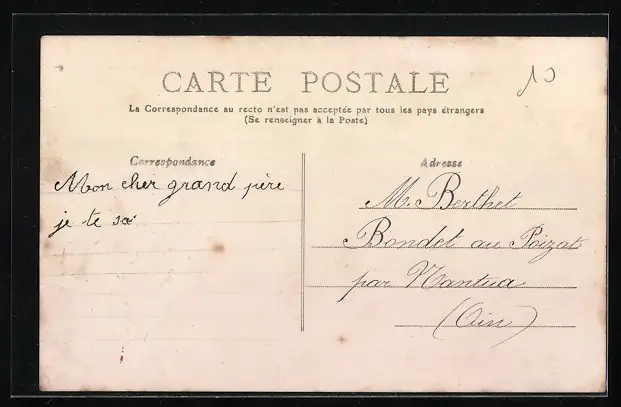 CARTE POSTALE
10
La Correspondance au recto n'est pas acceptée par tous les pays étrangers
(Se renseigner à la Poste)
Correspondance
Mon cher grand père
je te
Adresse
M. Berthet
Bondet au Poizat
par Nantua
(Ain)